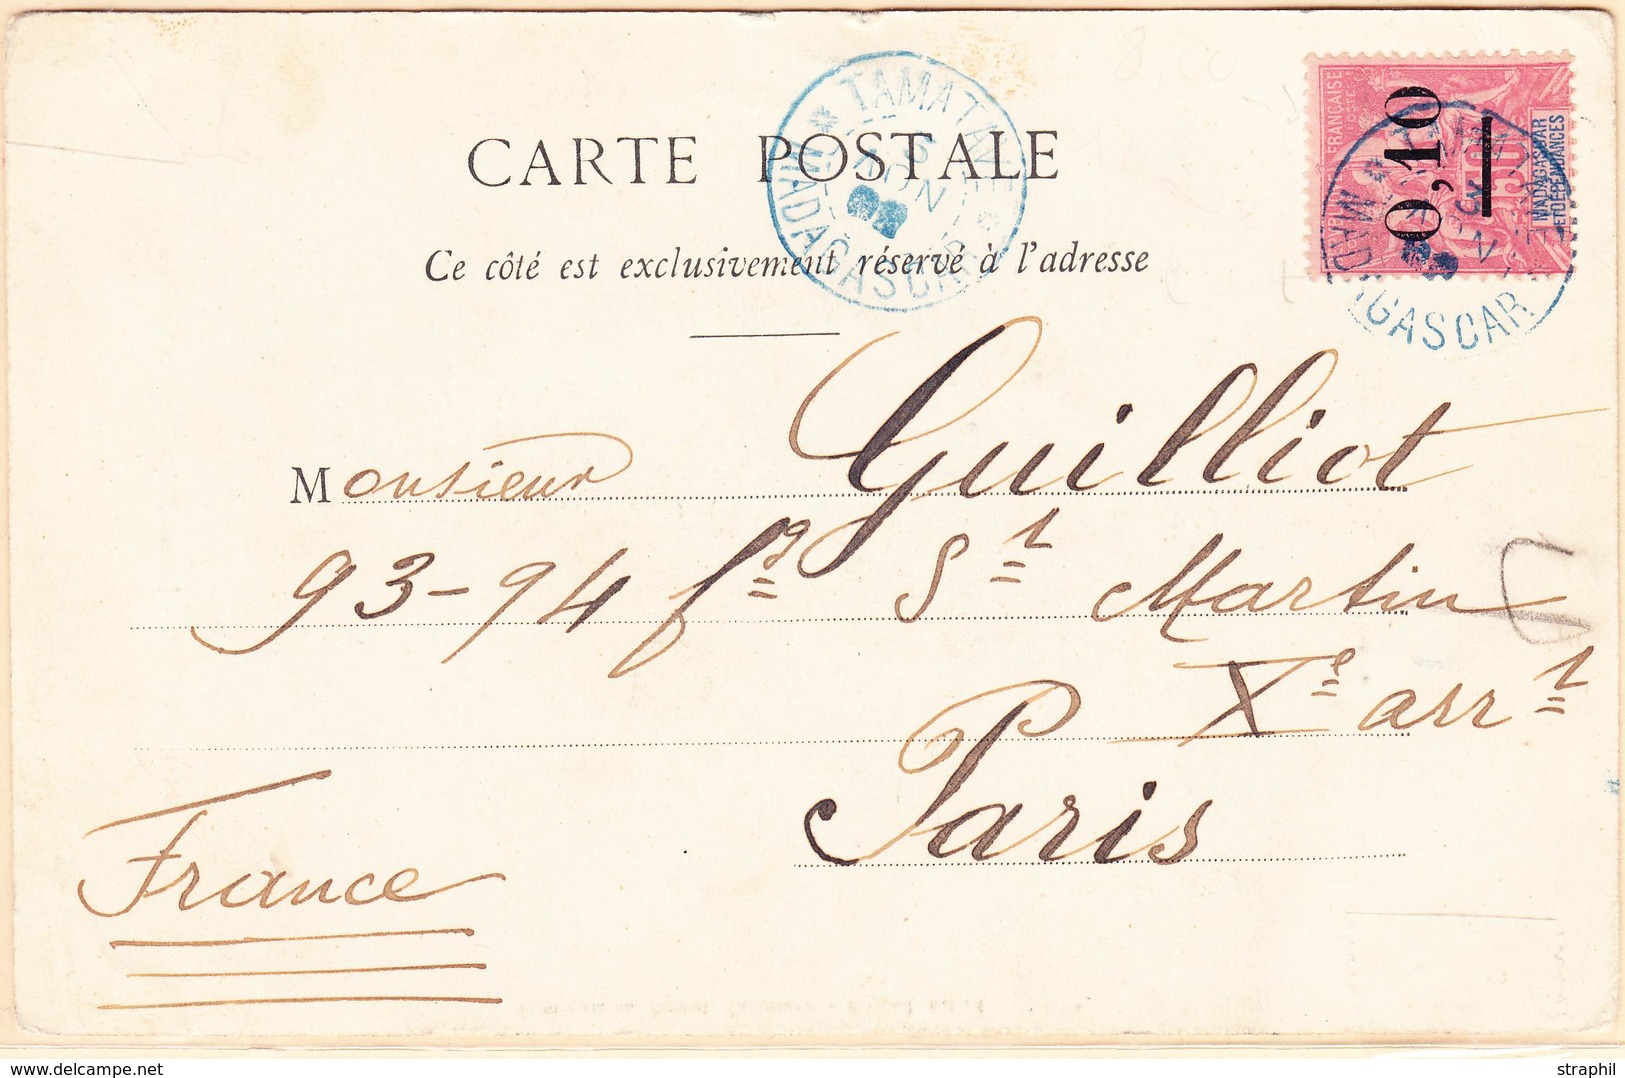 CARTE POSTALE
Ce côté est exclusivement réservé à l'adresse
TAMATAVE
MADAGASCAR
0,10
50
MADAGASCAR
ET DÉPENDANCES
MADAGASCAR
Monsieur Guilliot
93-94 fg St Martin
Xe arrt
Paris
France
straphil
www.delcampe.net